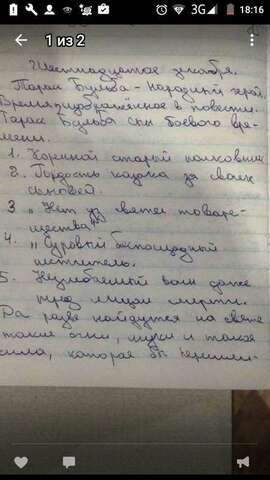 3G 18:16
1 из 2
Шестнадцатое декабря.
Тарас Бульба - народный герой.
Время, изображённое в повести.
Тарас Бульба сын боевого вре-
мени.
1. Коренной старый полковник
2. Гордость казака за своих
сыновей.
3 „Нет уз святее товари-
щества"
4. „Суровый беспощадный
мститель.
5. Несгибаемый воин даже
пред лицом смерти.
Да разве найдутся на свете
такие огни, муки и такая
сила, которая бы